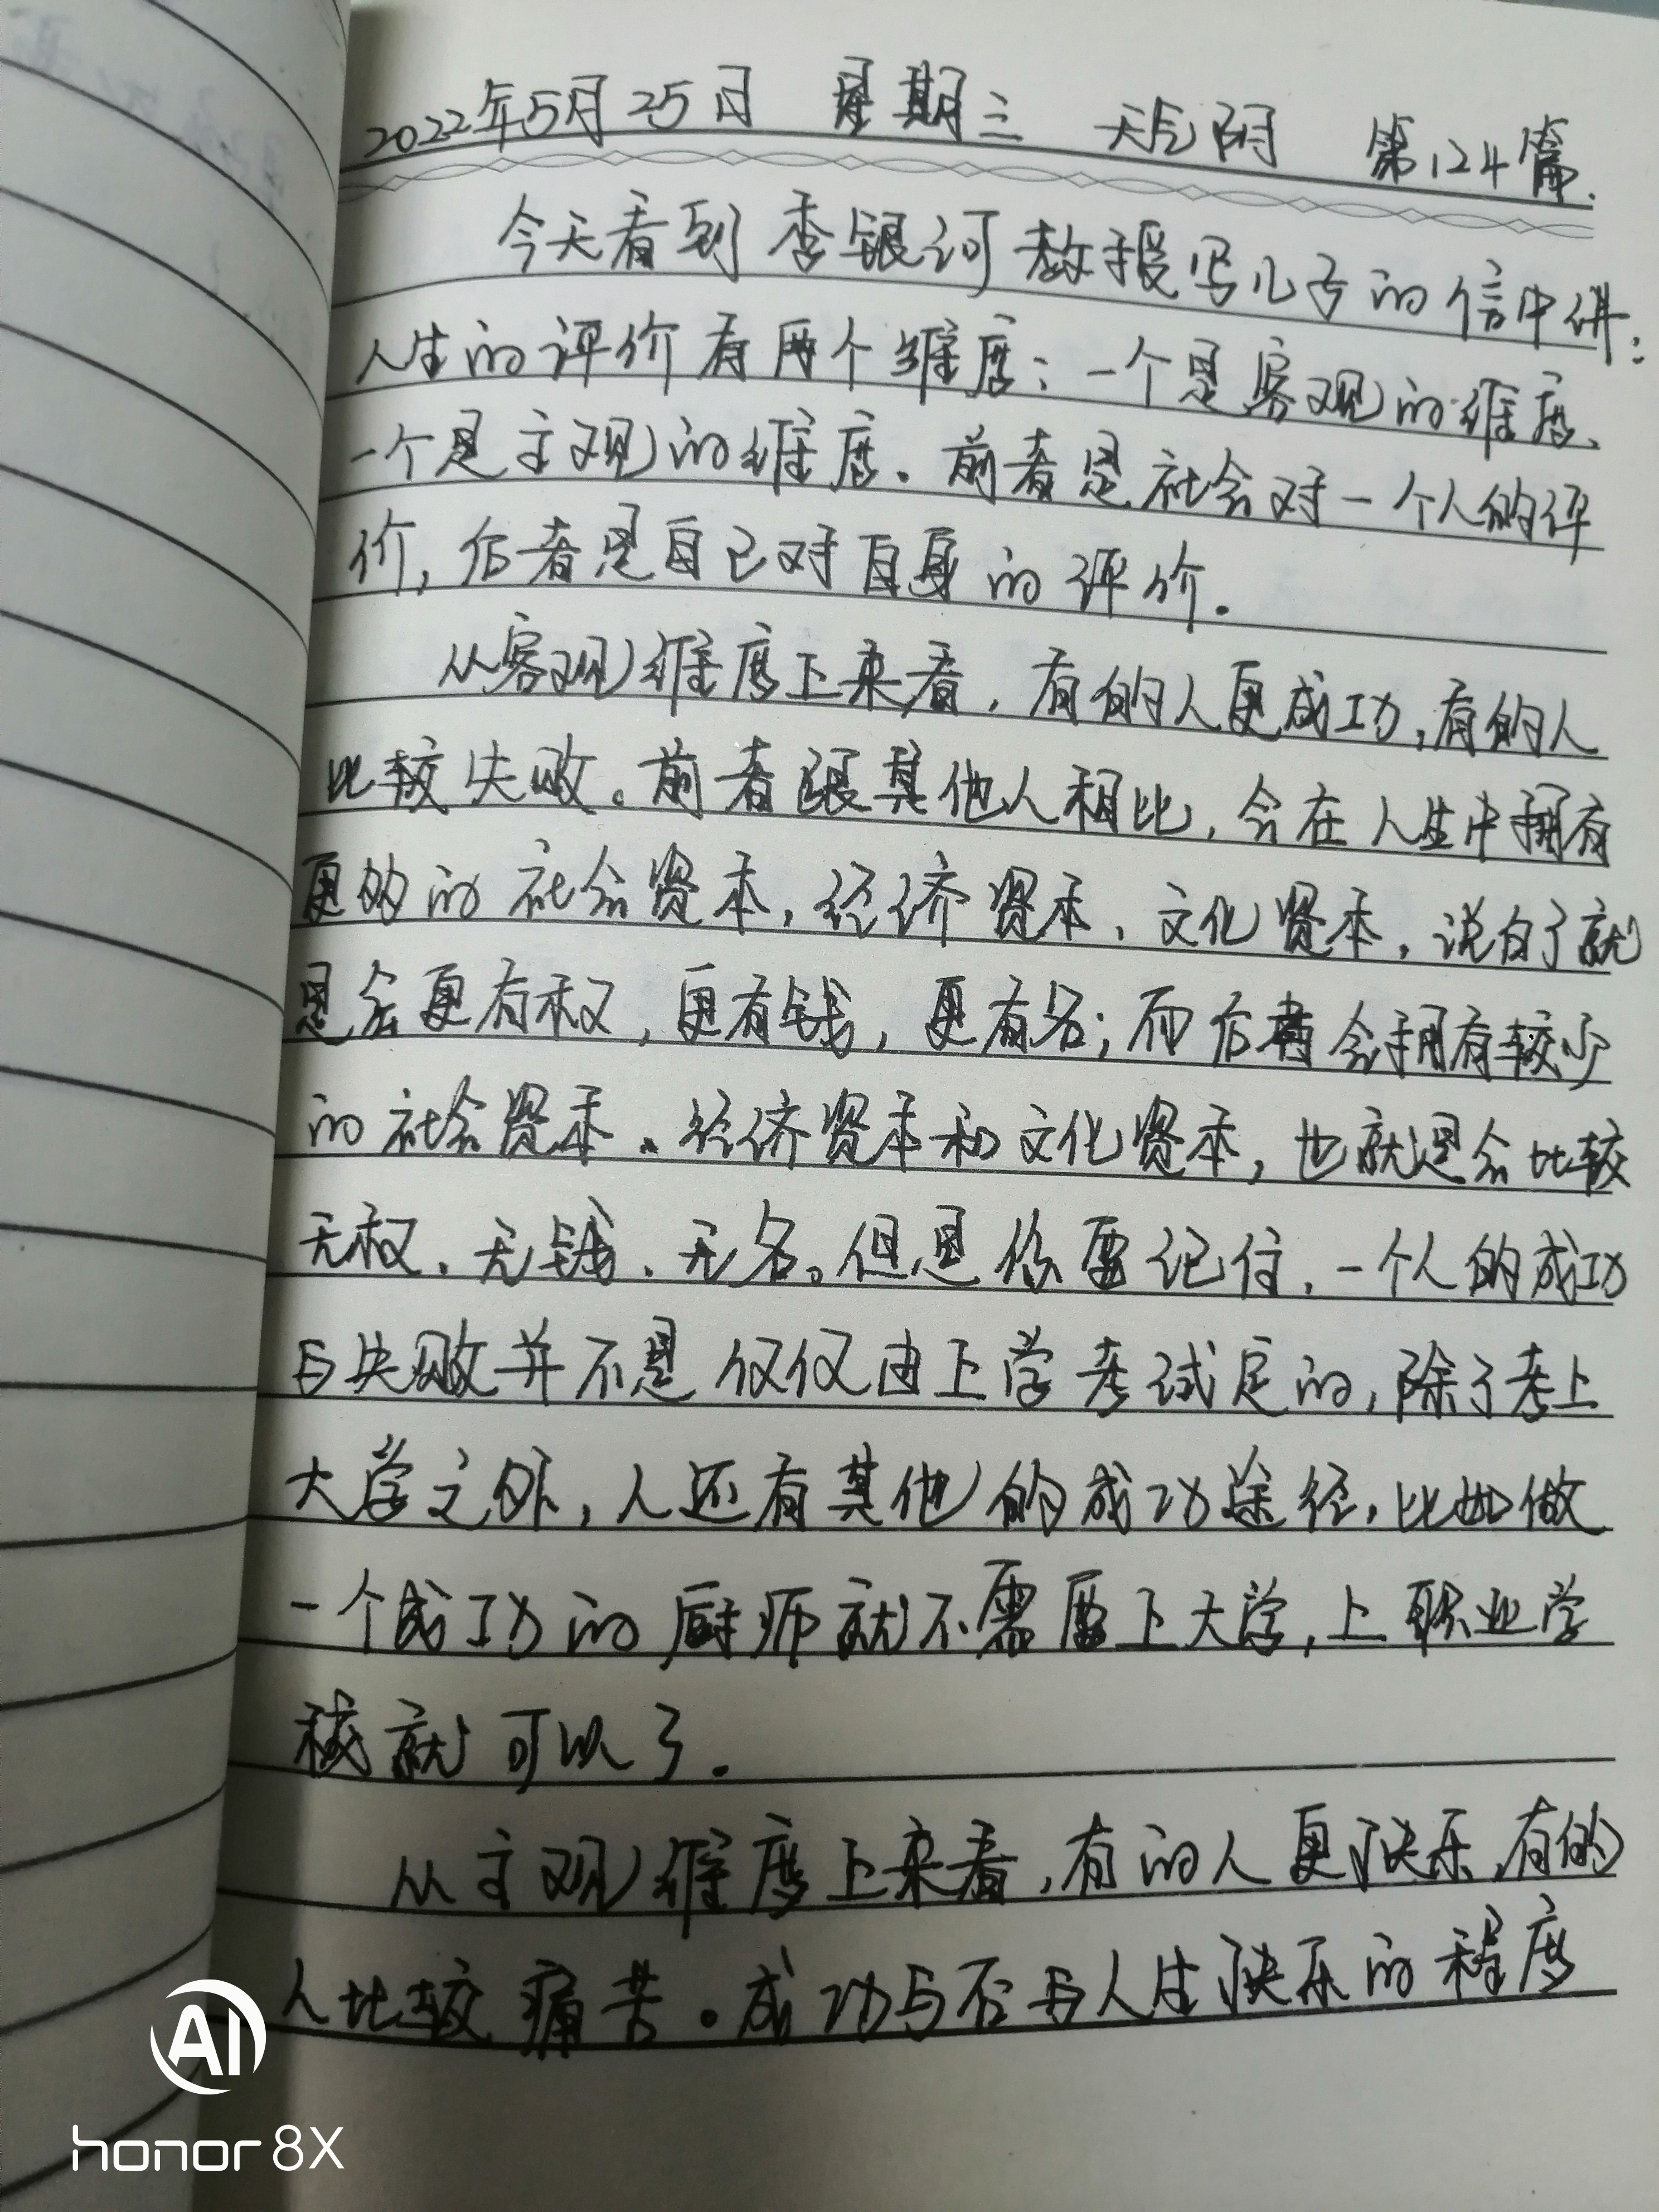 2022年5月25日 星期三 天气阴 第124篇.
今天看到李银河教授写儿子的信中讲:
人生的评价有两个维度:一个是客观的维度、
一个是主观的维度.前者是社会对一个人的评
价,后者是自己对自身的评价.
从客观维度上来看,有的人更成功,有的人
比较失败。前者跟其他人相比,会在人生中拥有
更多的社会资本,经济资本、文化资本,说白了就
是会更有权,更有钱,更有名;而后者会拥有较少
的社会资本、经济资本和文化资本,也就是会比较
无权、无钱、无名。但是你要记住,一个人的成功
与失败并不是仅仅由上学考试定的,除了考上
大学之外,人还有其他的成功途径,比如做
一个成功的厨师就不需要上大学,上职业学
校就可以了.
从主观维度上来看,有的人更快乐,有的
人比较痛苦。成功与否与人生快乐的程度
AI
honor 8X